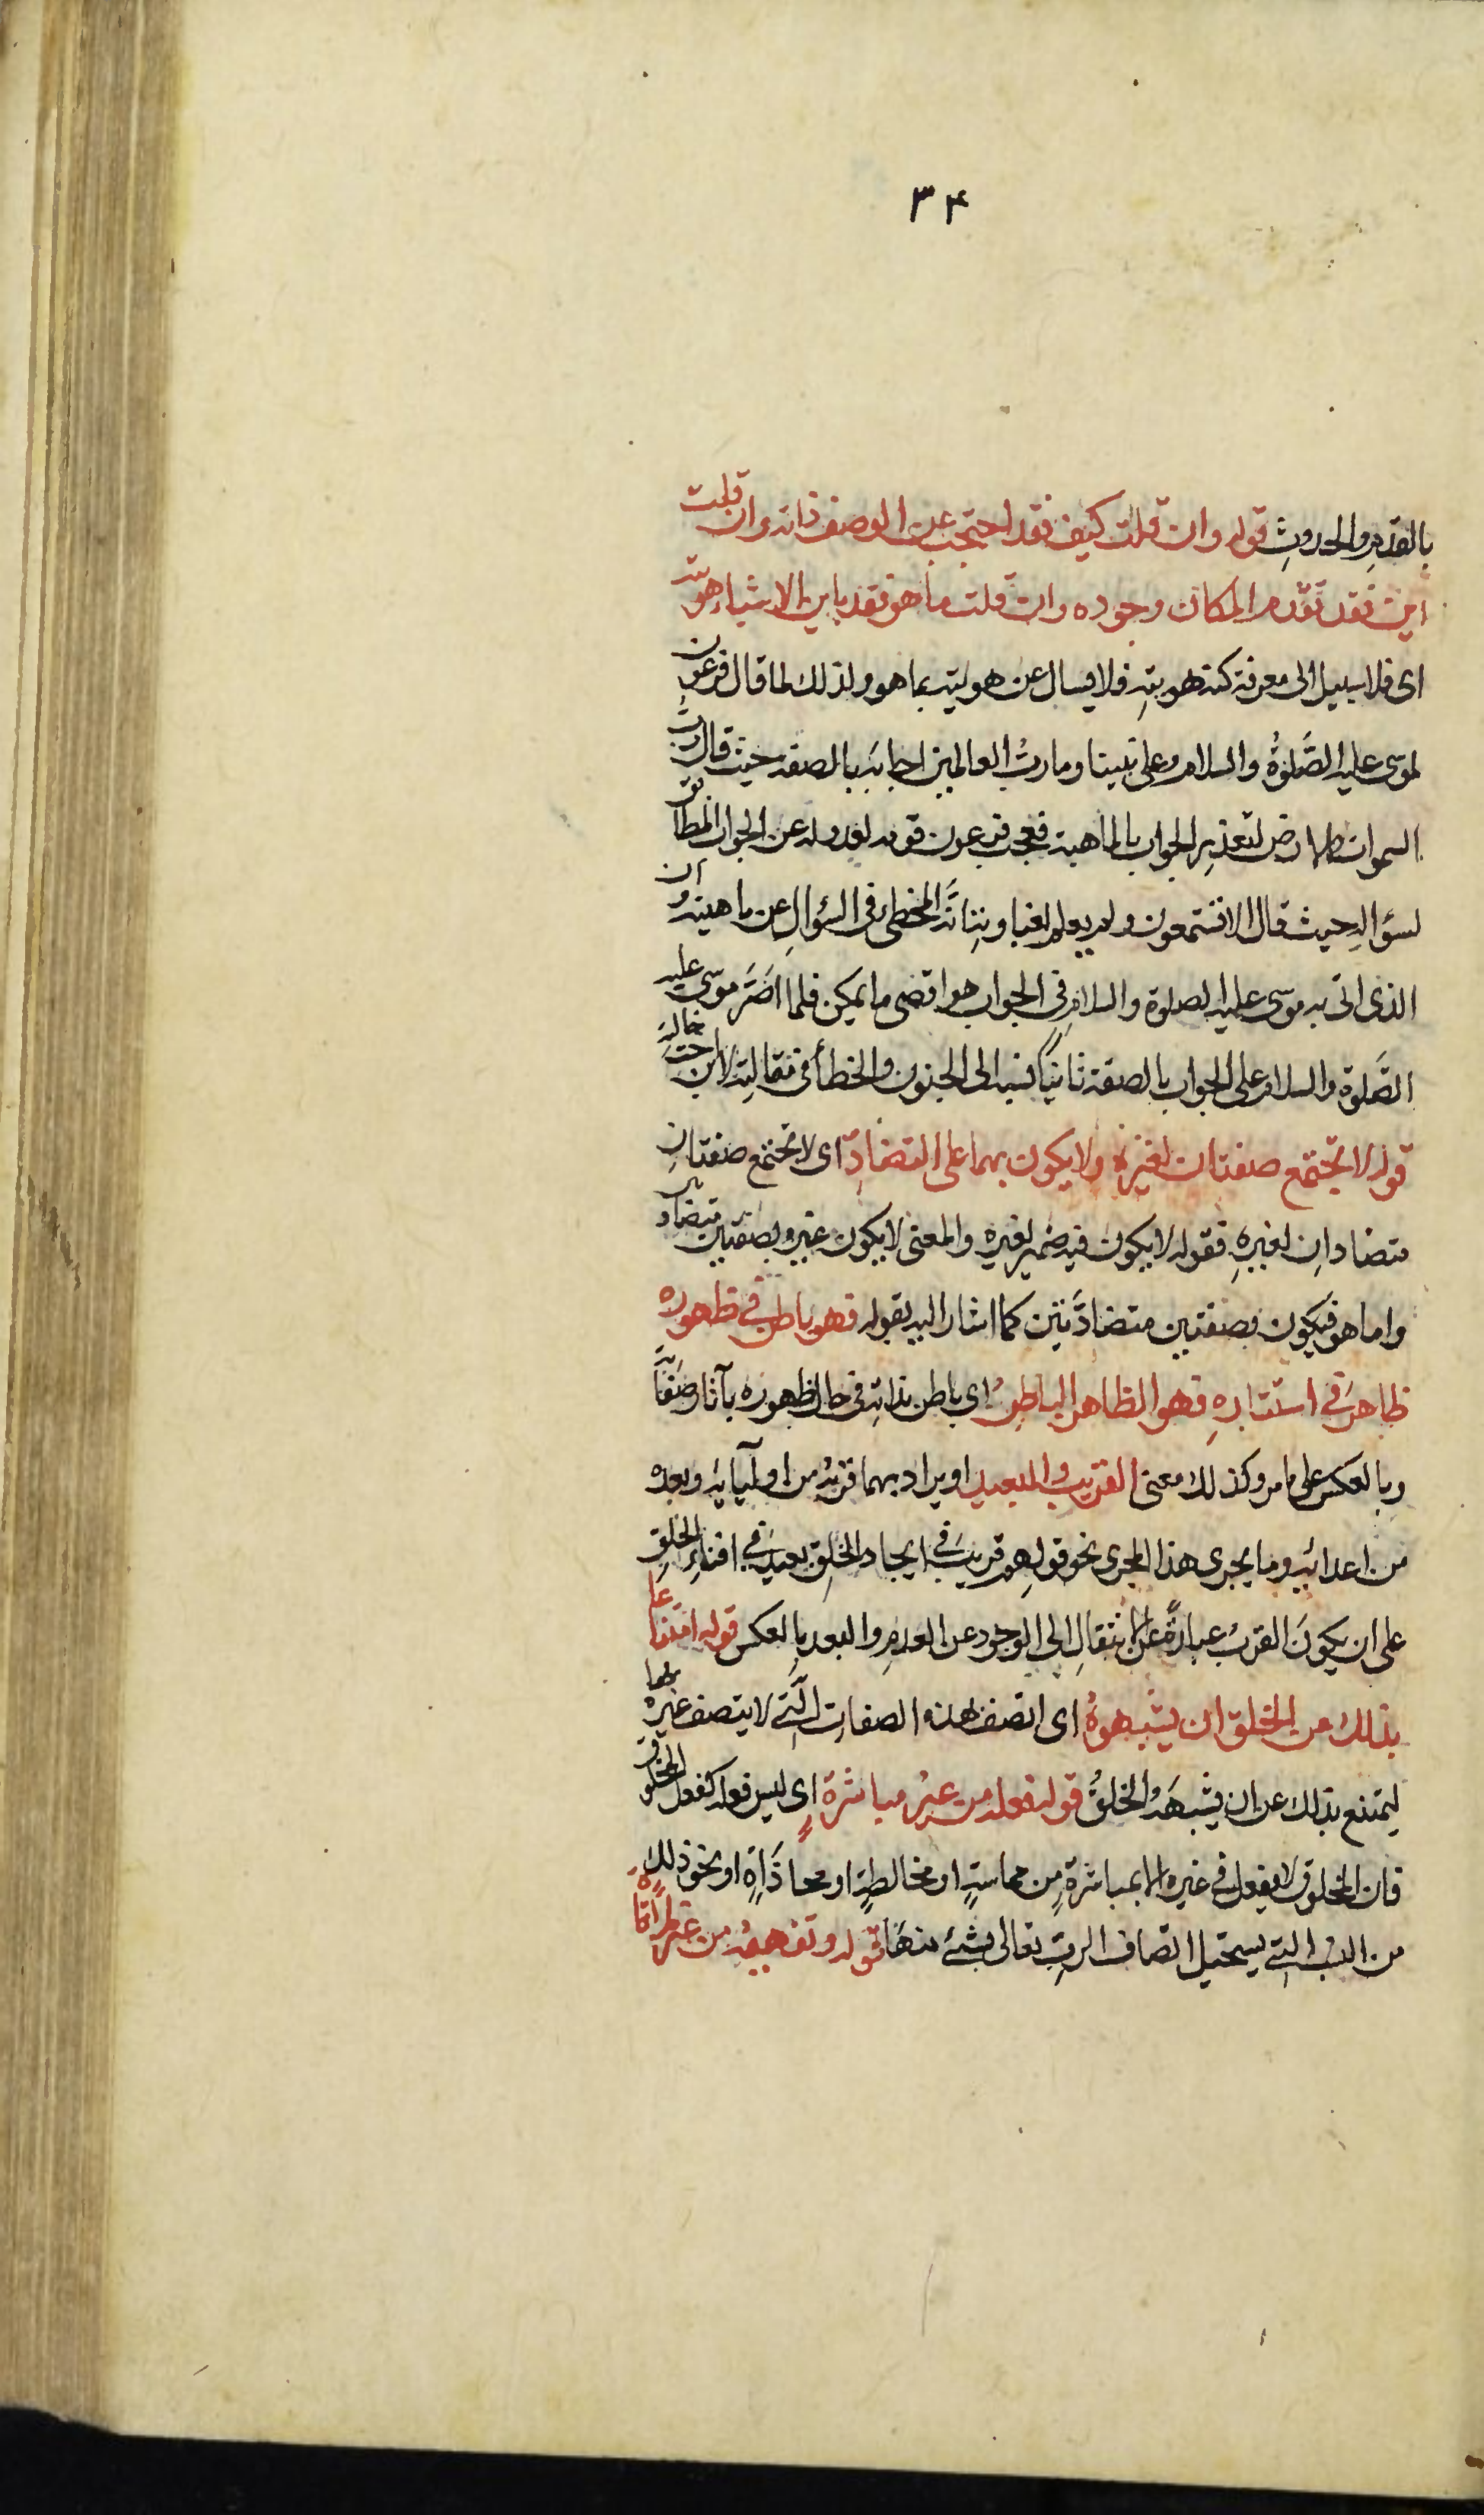 ۳۴
بالقدم والحدوثِ قوله وان قلت كيف فقد احتجب عن الوصف ذاته وان قلت
اين فقد تقدم المكان وجوده وان قلت ما هو فقد باين الاشياء هويته
اى فلا سبيل الى معرفة كنه هويتهِ فلا يسال عن هويته بما هو ولذلك لما قال فرعون
لموسى عليه الصَّلوةُ والسلام وعلى نبينا وما ربُّ العالمين اجابَه بالصفة حيث قال ربُّ
السموات والارض لتعذرِ الجواب بالماهية فعجب فرعون قومه لعدوله عن الجواب المطابق
لسؤالهِ حيث قال الا تستمعون ولم يعلم لغباوتِه انَّه المخطى فى السؤالِ عن ماهيته وان
الذى اتى به موسى عليه الصلوة والسلامِ فى الجواب هو اقصى ما يمكن فلما اصَرَّ موسى عليه
الصَّلوة والسلام على الجواب بالصفة ثانيًا نسبه الى الجنون والخطأ فى مقالته لابن خالهِ
قوله لا تجتمع صفتان لغيره ولا يكون بهما على التضادِّ اى لا تجتمع صفتانِ
متضادانِ لغيرهِ فقوله لا يكون فيه ضمير لغيره والمعنى لا يكون غيره بصفتين متضادتين
واما هو فيكون بصفتين متضادَّتين كما اشار اليه بقوله فهو باطن فى ظهوره
ظاهرٌ فى استتارهِ فهو الظاهر الباطنُ اى باطن بذاتهِ فى حال ظهوره بآثار صفاتهِ
وبالعكس على ما مر وكذلك معنى القريب والبعيد او يراد بهما قربُه من اوليآئهِ وبعده
من اعدائِه وما يجرى هذا المجرى نحو قوله هو قريبٌ فى ايجاد الخلق بعيدٌ فى افناءِ الخلقِ
على ان يكونَ القربُ عبارةً عن الانتقالِ الى الوجود عن العدمِ والبعد بالعكس قوله امتناعا
بذلك من الخلق ان يشبهوهُ اى اتصف بهذه الصفاتِ الَّتى لا يتصف غيره بها
ليمتنع بذلك عن ان يشبهَه الخلقُ قوله فعله من غيرِ مباشرةٍ اى ليس فعله كفعل المخلوق
فان المخلوق لا يفعل فى غيره الا بمباشرةٍ من مماسةٍ او مخالطةٍ او محاذاةٍ او نحو ذلك
من التى يستحيل اتصاف الرب تعالى بشئ منها قوله وتفهيمُه من غير ملاقاةٍ